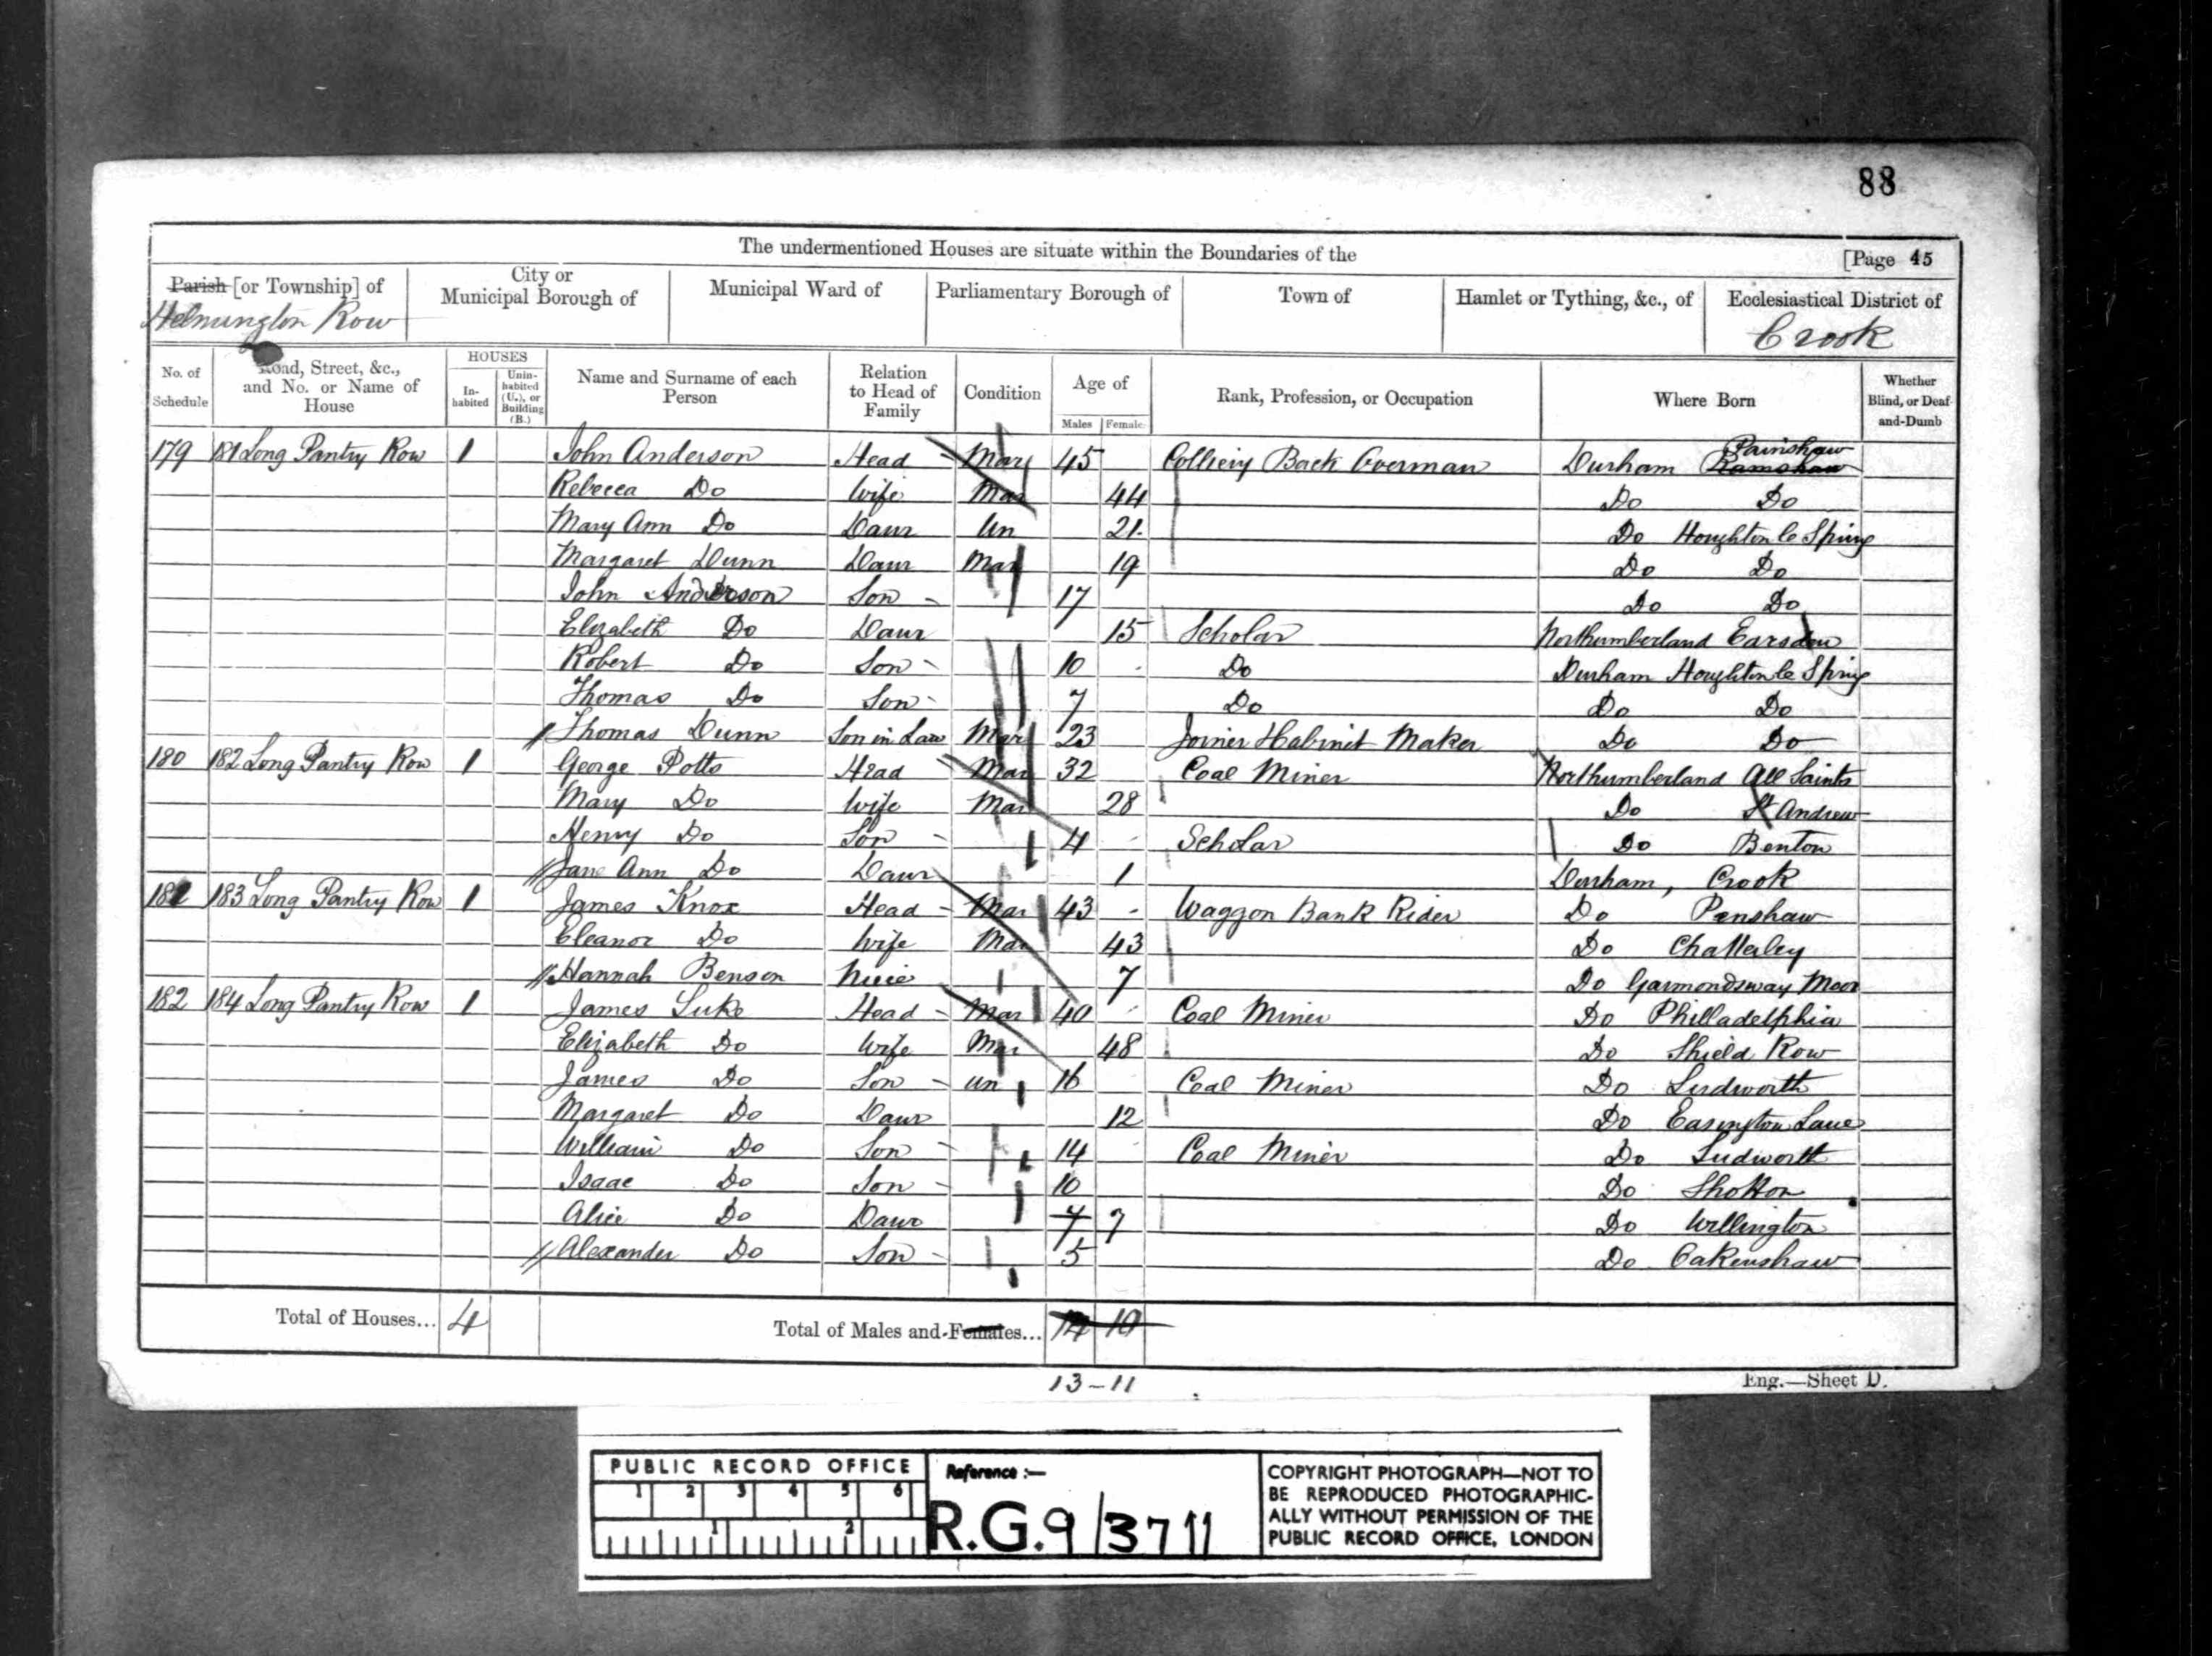 88
The undermentioned Houses are situate within the Boundaries of the [Page 45
Parish [or Township] of City or Municipal Borough of Municipal Ward of Parliamentary Borough of Town of Hamlet or Tything, &c., of Ecclesiastical District of
Helmington Row Crook
No. of Schedule Road, Street, &c., and No. or Name of House HOUSES In-habited Unin-habited (U.), or Building (B.) Name and Surname of each Person Relation to Head of Family Condition Age of Males Females Rank, Profession, or Occupation Where Born Whether Blind, or Deaf-and-Dumb
179 181 Long Pantry Row 1 John Anderson Head Mar 45 Colliery Back Overman Durham Painshaw Ramshaw
Rebecca Do Wife Mar 44 Do Do
Mary Ann Do Daur Un 21 Do Houghton le Spring
Margaret Dunn Daur Mar 19 Do Do
John Anderson Son 17 Do Do
Elizabeth Do Daur 15 Scholar Northumberland Earsdon
Robert Do Son 10 Do Durham Houghton le Spring
Thomas Do Son 7 Do Do Do
Thomas Dunn Son in Law Mar 23 Joiner & Cabinit Maker Do Do
180 182 Long Pantry Row 1 George Potts Head Mar 32 Coal Miner Northumberland All Saints
Mary Do Wife Mar 28 Do St Andrew
Henry Do Son 4 Scholar Do Benton
Jane Ann Do Daur 1 Durham, Crook
181 183 Long Pantry Row 1 James Knox Head Mar 43 Waggon Bank Rider Do Penshaw
Eleanor Do Wife Mar 43 Do Chatterley
Hannah Benson Niece 7 Do Garmondsway Moor
182 184 Long Pantry Row 1 James Luke Head Mar 40 Coal Miner Do Philladelphia
Elizabeth Do Wife Mar 48 Do Shield Row
James Do Son Un 16 Coal Miner Do Ludworth
Margaret Do Daur 12 Do Easington Lane
William Do Son 14 Coal Miner Do Ludworth
Isaac Do Son 10 Do Shotton
Alice Do Daur 7 7 Do Willington
Alexander Do Son 5 Do Oakenshaw
Total of Houses... 4 Total of Males and Females... 14 10
13-11
Eng.—Sheet D.
PUBLIC RECORD OFFICE
1 2 3 4 5 6
1 2
Reference :—
R.G. 9/3711
COPYRIGHT PHOTOGRAPH—NOT TO
BE REPRODUCED PHOTOGRAPHIC-
ALLY WITHOUT PERMISSION OF THE
PUBLIC RECORD OFFICE, LONDON